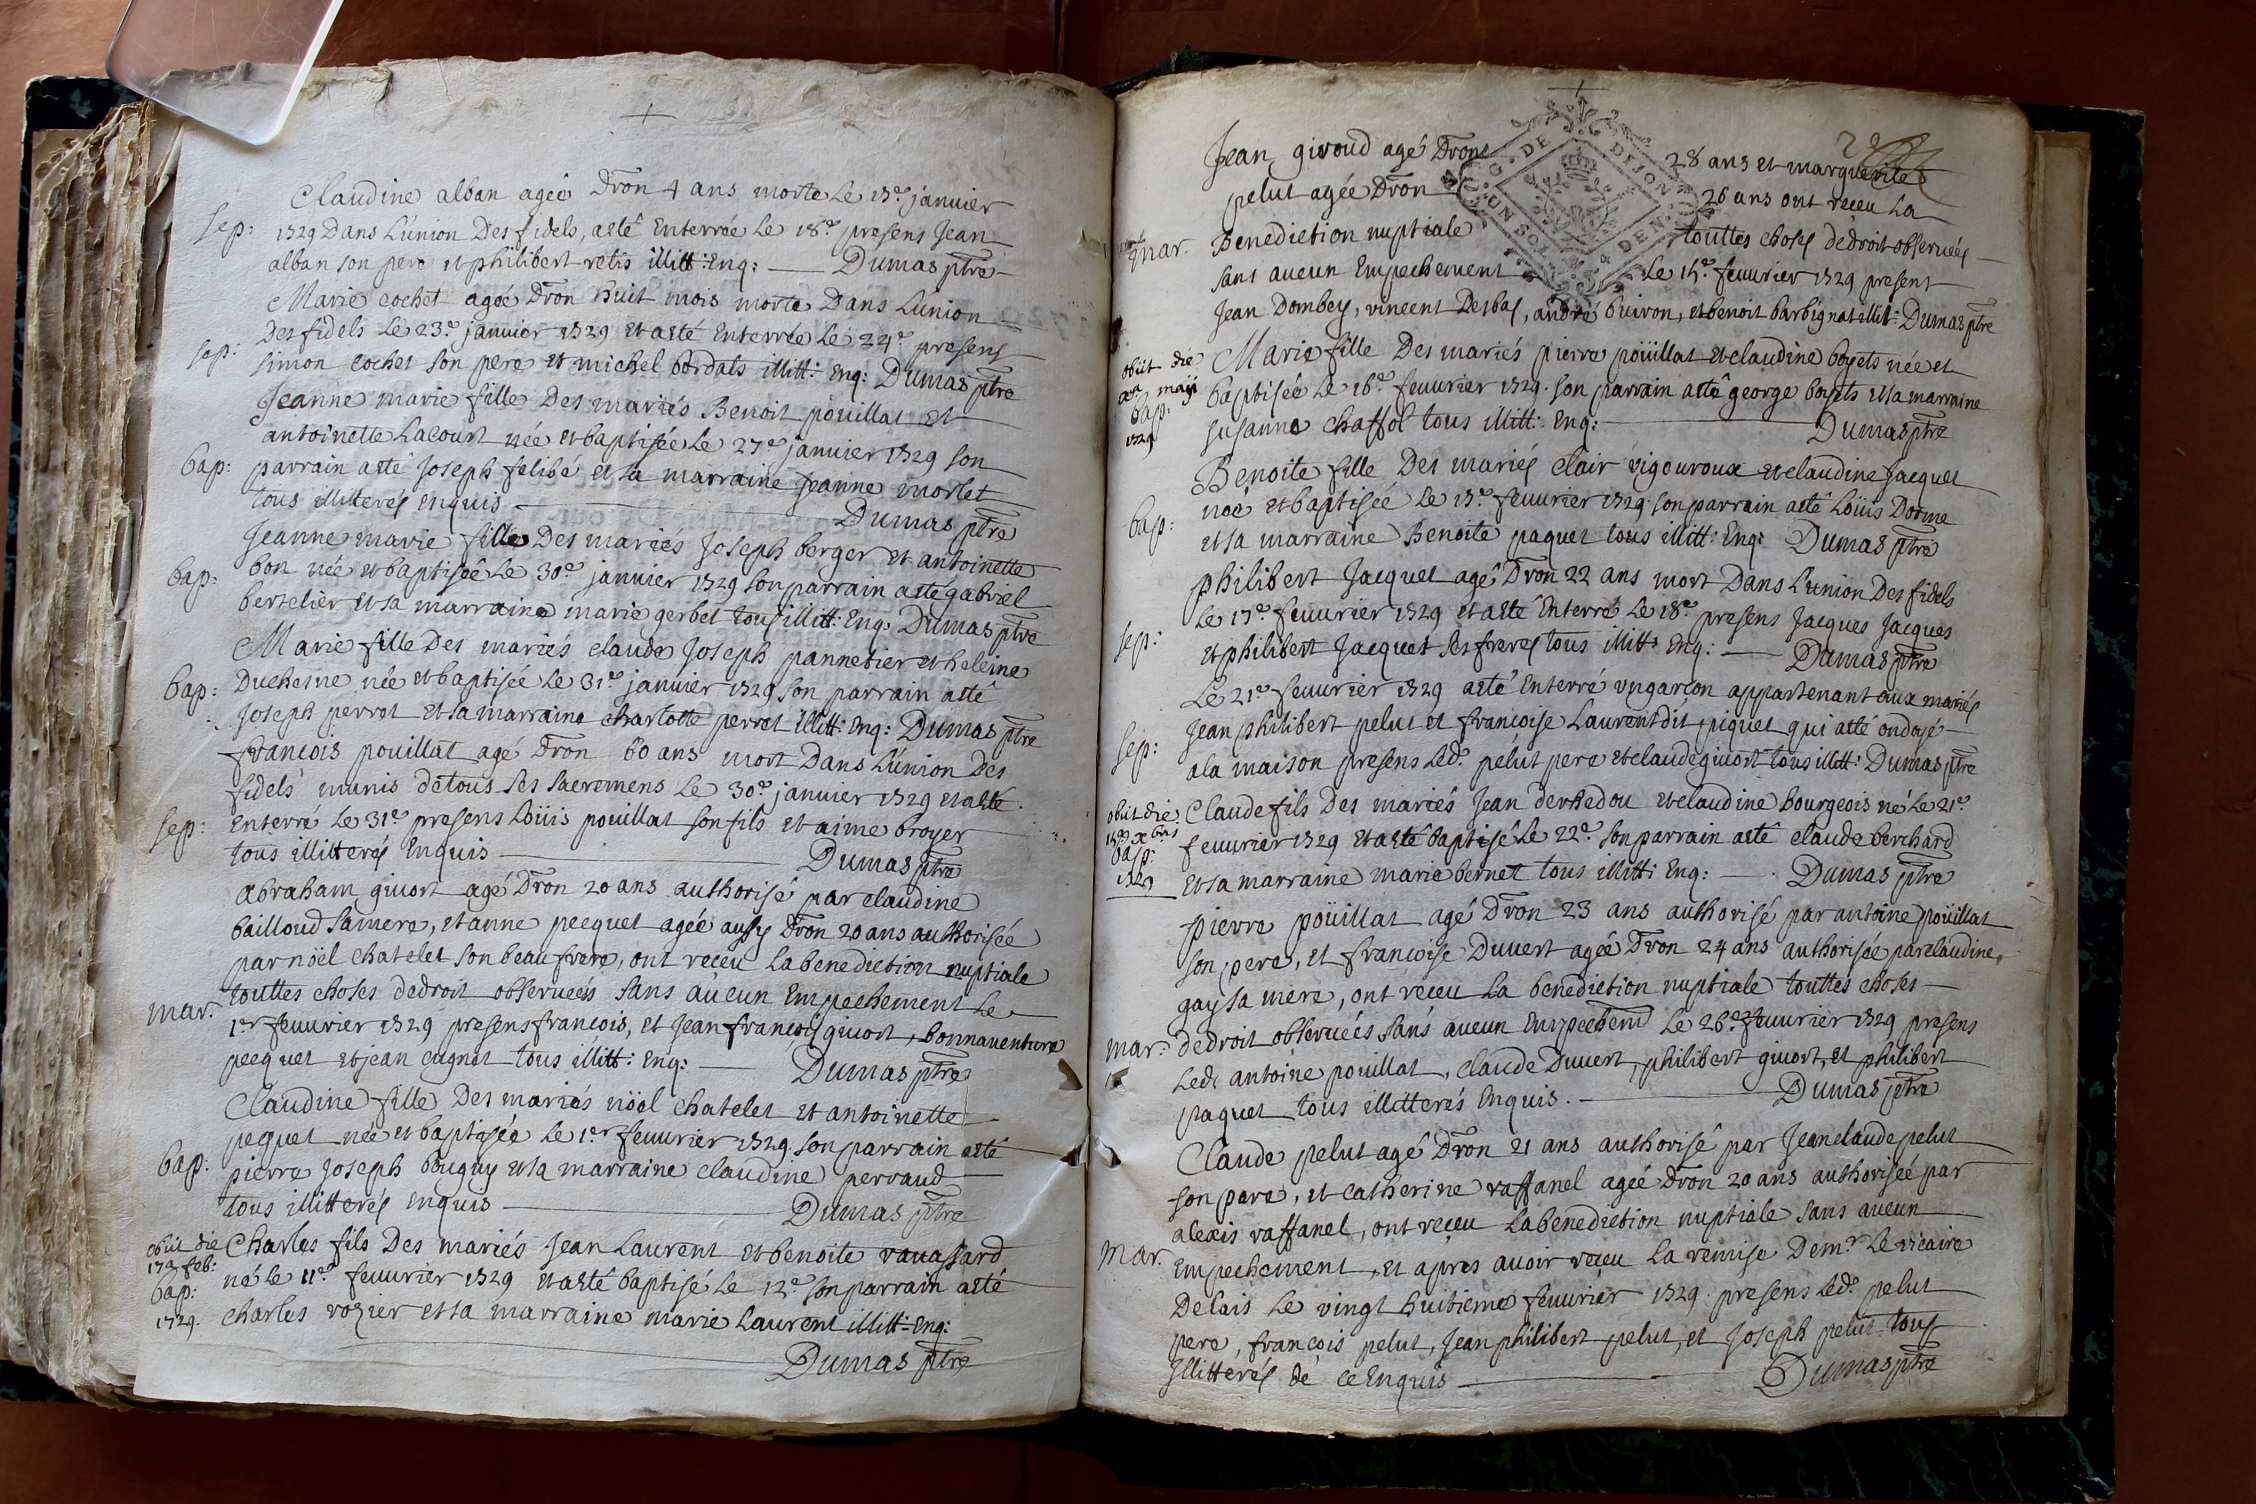 Claudine alban agée Dron 4 ans morte Le 17e janvier
sep: 1729 Dans L'union Des fidels, aesté Enterrée Le 18e presens Jean
alban son pere et philibert retis illitt: Enq: Dumas ptre
Marie cochet agée Dron huit mois morte Dans L'union
Des fidels Le 23e janvier 1729 et aesté Enterrée Le 24e presens
sep: simon cochet son pere et michel bordats illitt: Enq: Dumas ptre
Jeanne marie fille Des mariés Benoit pouillat et
antoinette Lacourt née et baptisée Le 27e janvier 1729 son
bap: parrain aesté Joseph felibé et sa marraine Jeanne morlet
tous illitterés Enquis Dumas ptre
Jeanne marie fille Des mariés Joseph berger et antoinette
bap: bon née et baptisée Le 30e janvier 1729 son parrain aesté gabriel
bertelier et sa marraine marie gerbet tous illitt: Enq: Dumas ptre
Marie fille Des mariés claude Joseph pannetier et heleine
bap: Duchesne née et baptisée Le 31e janvier 1729 son parrain aesté
Joseph perrot et sa marraine charlotte perret illitt: Enq: Dumas ptre
francois pouillat agé Dron 60 ans mort Dans L'union Des
fidels munis detous ses sacremens Le 30e janvier 1729 et aesté
sep: Enterré Le 31e presens Loüis pouillat son fils et aimé broyer
tous illitterés Enquis Dumas ptre
abraham givort agé Dron 20 ans authorisé par claudine
bailloud samere, et anne pecquet agée aussy Dron 20 ans authorisée
par nöel chatelet son beau frere, ont reçeu La benediction nuptiale
touttes choses dedroit observées sans aucun Empechement Le
mar. 1er fevvrier 1729 presens francois, et Jean francois givort, bonnaventure
pecquet et jean cugnet tous illitt: Enq: Dumas ptre
Claudine fille Des mariés nöel chatelet et antoinette
pequet née et baptisée Le 1er fevvrier 1729 son parrain aesté
bap: pierre Joseph bouguy et sa marraine claudine perraud
tous illitterés Enquis Dumas ptre
obiit die Charles fils Des mariés Jean Laurent et benoite vavassard
17a feb: né Le 11e fevvrier 1729 et aesté baptisé Le 12e son parrain aesté
bap:
1729. charles rozier et sa marraine marie Laurent illitt: Enq:
Dumas ptre
Jean giroud agé Dron 28 ans et marguerite
pelut agée Dron 26 ans ont reçeu La
mar. Benediction nuptiale touttes choses dedroit observées
sans aucun Empechement Le 15e fevvrier 1729 present
Jean Dombey, vincent Desbas, andré buiron, et benoit barbignat illitt: Dumas ptre
G. DE DIJON
UN SOL DEN.
obiit die Marie fille Des mariés pierre poüillat et claudine boyets née et
maij baptisée Le 16e fevvrier 1729. son parrain aesté george boyets et sa marraine
bap:
1729 susanne chaffot tous illitt: Enq: Dumas ptre
Benoite fille Des mariés clair vigouroux et claudine Jacquet
bap: née et baptisée Le 17e fevvrier 1729 son parrain aesté Loüis Dorme
et sa marraine Benoite paquet tous illitt: Enq: Dumas ptre
philibert Jacquet agé Dron 22 ans mort Dans L'union Des fidels
Le 17e fevvrier 1729 et aesté Enterré Le 18e presens Jacques Jacques
sep: et philibert Jacquet ses freres tous illitt: Enq: Dumas ptre
Le 21e fevvrier 1729 aesté Enterré vngarcon appartenant aux mariés
sep: Jean philibert pelut et francoise Laurent dit piquet qui aesté ondoyé
ala maison presens Led. pelut pere et claude givort tous illitt: Dumas ptre
obiit die Claude fils Des mariés Jean derhedou et claudine bourgeois né Le 21e
18a xbris fevvrier 1729 et aesté baptisé Le 22e son parrain aesté claude berchard
bap:
1729 et sa marraine marie bernet tous illitt: Enq: Dumas ptre
pierre poüillat agé Dron 23 ans authorisé par antoine poüillat
son pere, et francoise Duvert agée Dron 24 ans authorisée par claudine
gay sa mere, ont reçeu La benediction nuptiale touttes choses
mar: dedroit observées sans aucun Empechem Le 26e fevvrier 1729 presens
Led. antoine pouillat, claude Duvert, philibert givort, et philibert
paquet tous illitterés Enquis. Dumas ptre
Claude pelut agé Dron 21 ans authorisé par Jean claude pelut
son pere, et catherine raffanel agée Dron 20 ans authoriseé par
alexis raffanel, ont reçeu La benediction nuptiale sans aucun
mar. Empechement, et apres avoir reçeu La remise Demr Le vicaire
Delais Le vingt huitieme fevvrier 1729. presens Led. pelut
pere, francois pelut, Jean philibert pelut, et Joseph pelut tous
Illitterés de ce Enquis Dumas ptre